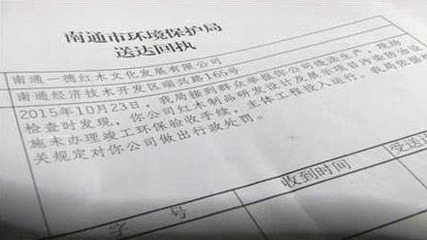 南通市环境保护局
送达回执
南通一德红木文化发展有限公司
南通经济技术开发区瑞兴路165号
2015年10月23日，我局接到群众举报你公司违法生产，现场
检查时发现，你公司红木制品研发设计及展示项目污染防治设
施未办理竣工环保验收手续，主体工程投入运行。我局依照相
关规定对你公司做出行政处罚。
字 号
收到时间
受送达